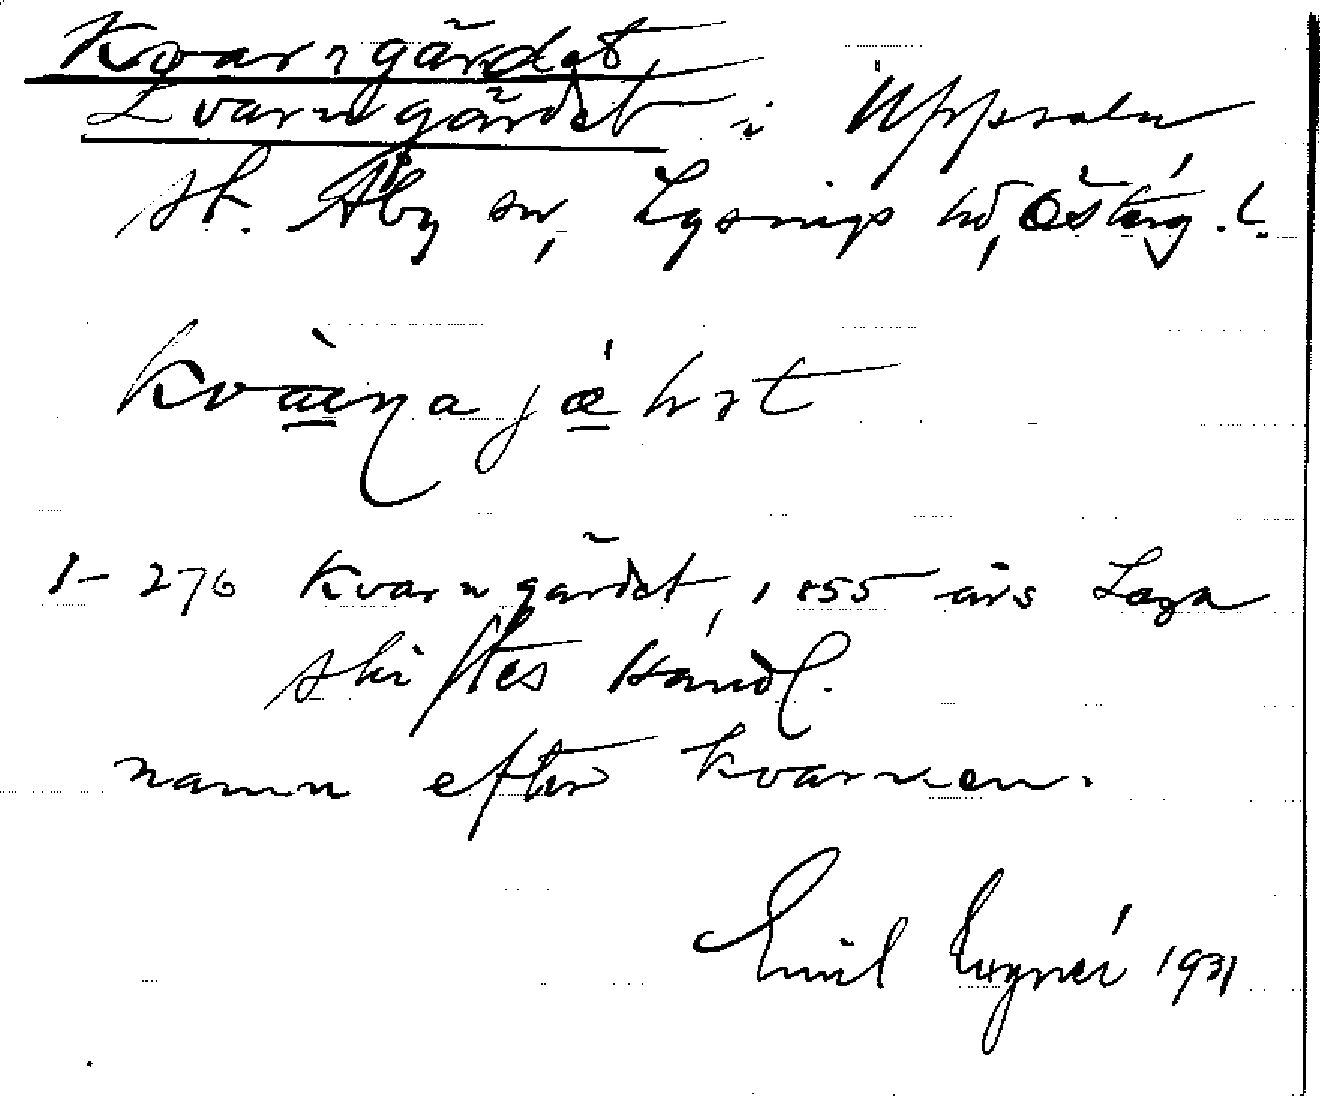 Kvarngärdet,
Kvarngärdet i Uppsala
st. Åby sn, Lysings hd, Österg. l.
kvæ̀ɳajǽ ʈ
1- 276 Kvarngärdet, 1855 års Laga
skiftes Handl.
namn efter kvarnen.
Emil 1931